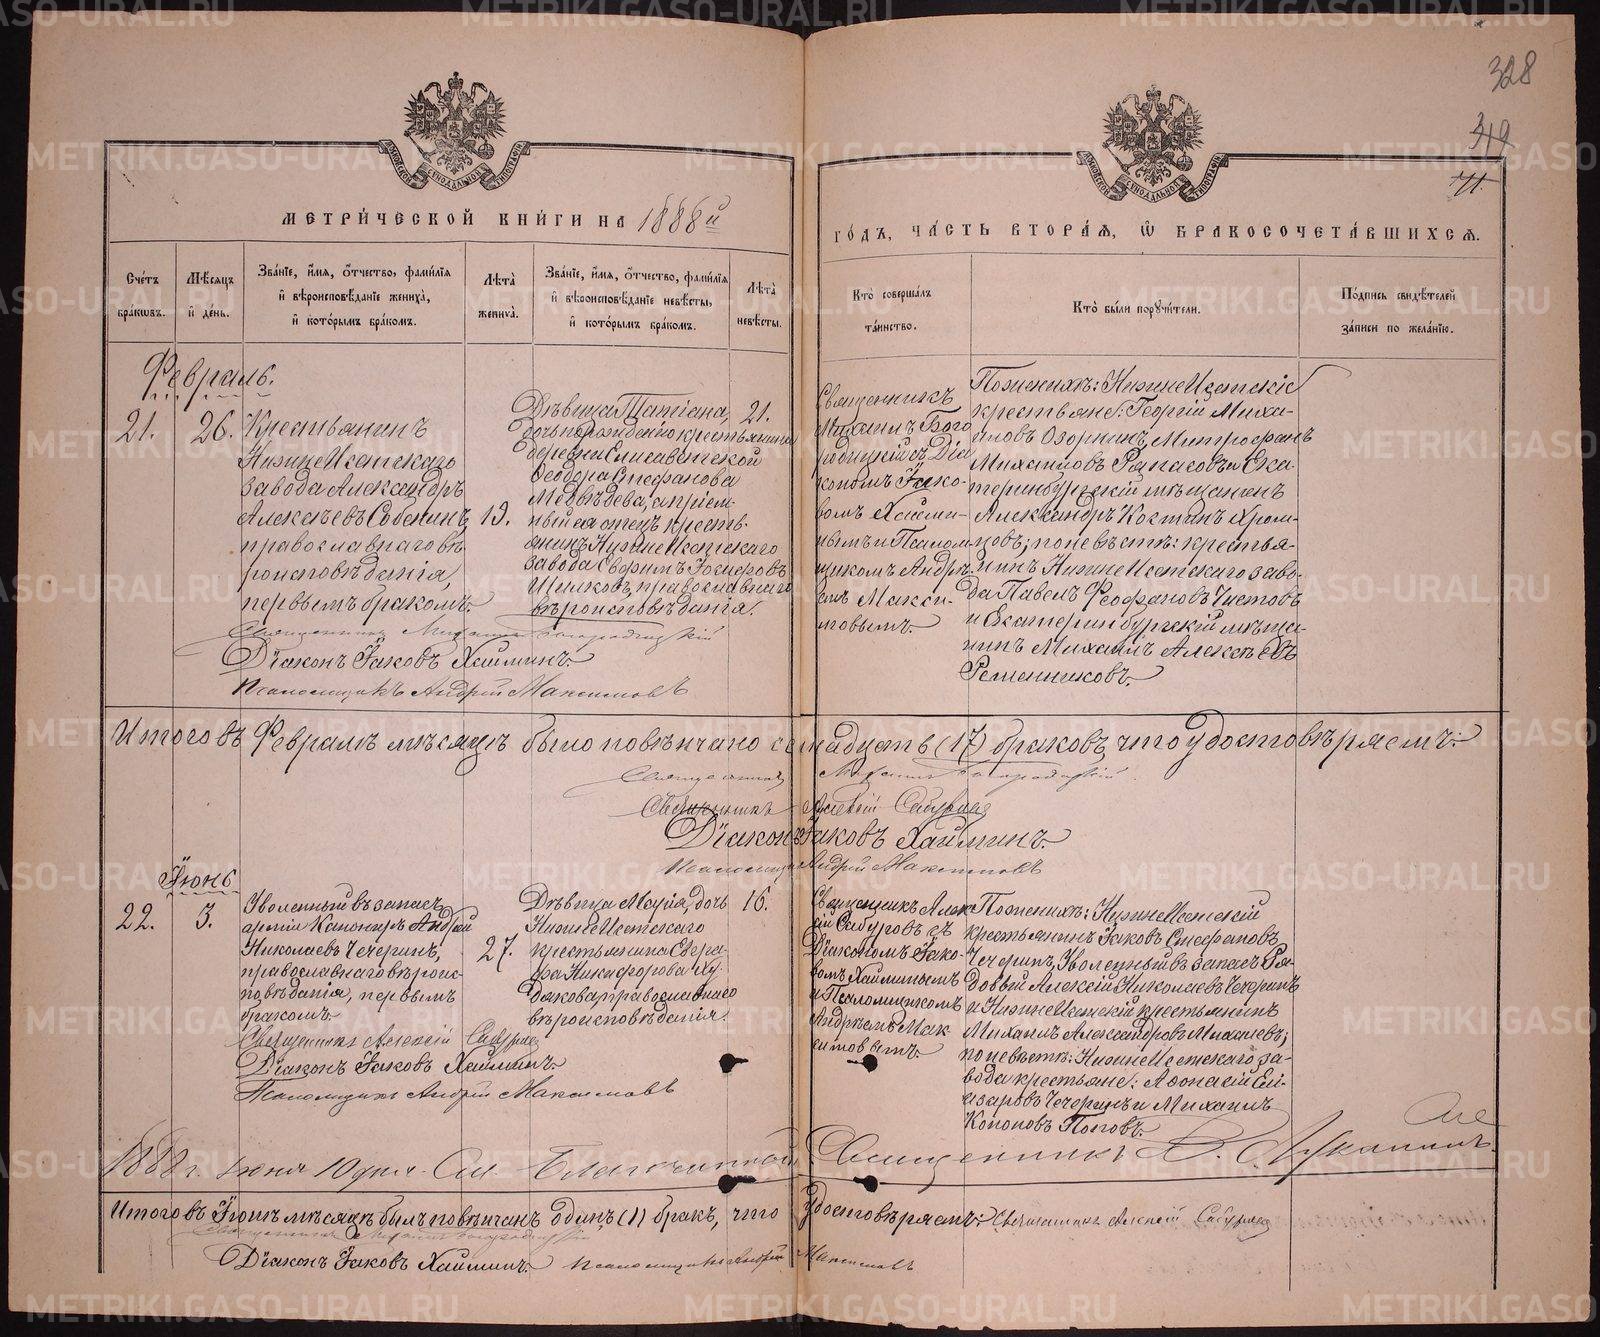 328
319
71
МЕТРИ́ЧЕСКОЙ КНИ́ГИ НА 1888й
ГО́ДЪ, ЧА́СТЬ ВТОРА́Я, Ѡ БРАКОСОЧЕТА́ВШИХСЯ.
Сче́тъ бра́ковъ.
Мѣ́сяцъ и́ де́нь.
Зва́нїе, и́мя, о́тчество, фами́лїя и́ вѣроисповѣ́данїе жениха̀, и́ кото́рымъ бра́комъ.
Лѣ́та жениха̀.
Зва́нїе, и́мя, о́тчество, фами́лїя и́ вѣроисповѣ́данїе невѣ́сты, и́ кото́рымъ бра́комъ.
Лѣ́та невѣ́сты.
Кто̀ соверша́лъ та́инство.
Кто̀ бы́ли поручи́тели.
По́дпись свидѣ́телей за́писи по жела́нїю.
Февраль.
21.
26.
Крестьянинъ
НижнеИсетскаго
завода Александръ
Алексѣевъ Собенинъ,
православнаго вѣ-
роисповѣданія,
первымъ бракомъ.
19.
Дѣвица Татіана,
дочь по рожденію крестьянина
деревни Елисаветской
Ѳеодора Стефанова
Медвѣдева, а пріем-
ный ея отецъ кресть-
янинъ НижнеИсетскаго
завода Евфимъ Іосифовъ
православнаго
вѣроисповѣданія.
21.
Священникъ
Михаилъ Бого
родицкій съ Діа
кономъ Іако-
вомъ Хаймин-
ымъ и Псалом-
щикомъ Андрѣ-
емъ Макси-
мовымъ.
По женихѣ: НижнеИсетскіе
крестьяне: Георгій Миха-
иловъ Озорнинъ, Митрофанъ
Михаиловъ и Ека-
теринбургскій мѣщанинъ
Александръ Хром-
цовъ; по невѣстѣ: крестья-
нинъ НижнеИсетскаго заво-
да Павелъ Феофановъ Чистовъ
и Екатеринбургскій мѣща-
нинъ Михаилъ Алексѣевъ
Решетниковъ.
Священникъ Михаилъ Богородицкій
Діаконъ Іаковъ Хайминъ.
Псаломщикъ Андрей Максимовъ
Итого въ Февралѣ мѣсяцѣ было повѣнчано семнадцать (17) браковъ, что удостовѣряемъ:
Священникъ Михаилъ Богородицкій.
Священникъ Алексій Сабуровъ
Діаконъ Іаковъ Хайминъ.
Псаломщикъ Андрей Максимовъ
Іюнь
22.
3.
Уволенный въ запасъ
арміи Канониръ Андрей
Николаевъ Чечеринъ,
православнаго вѣроис-
повѣданія, первымъ
бракомъ.
27.
Дѣвица Марія, дочь
НижнеИсетскаго
крестьянина Евгра-
фа Никифорова Ху-
дякова, православнаго
вѣроисповѣданія.
16.
Священникъ Алек
сій Сабуровъ съ
Діакономъ Іако-
вомъ Хайминымъ
и Псаломщикомъ
Андреемъ Мак
симовымъ.
По женихѣ: НижнеИсетскій
крестьянинъ Іаковъ Стефановъ
Чечеринъ, Уволенный въ запасъ Ря-
довый Алексій Николаевъ Чечеринъ
и НижнеИсетскій крестьянинъ
Михаилъ Александровъ Михалевъ;
по невѣстѣ: НижнеИсетскаго за-
вода крестьяне: Аѳонасій Ели-
заровъ Чечеринъ и Михаилъ
Кононовъ Поповъ.
Священникъ Алексій Сабуровъ
Діаконъ Іаковъ Хайминъ.
Псаломщикъ Андрей Максимовъ
1888 г. Іюня 10 дня. См. Благочинный Священникъ
Итого въ Іюнѣ мѣсяцѣ былъ повѣнчанъ одинъ (1) бракъ, что удостовѣряемъ: Священникъ Алексій Сабуровъ
Священникъ Михаилъ Богородицкій
Діаконъ Іаковъ Хайминъ. Псаломщикъ Андрей Максимовъ
METRIKI.GASO-URAL.RU